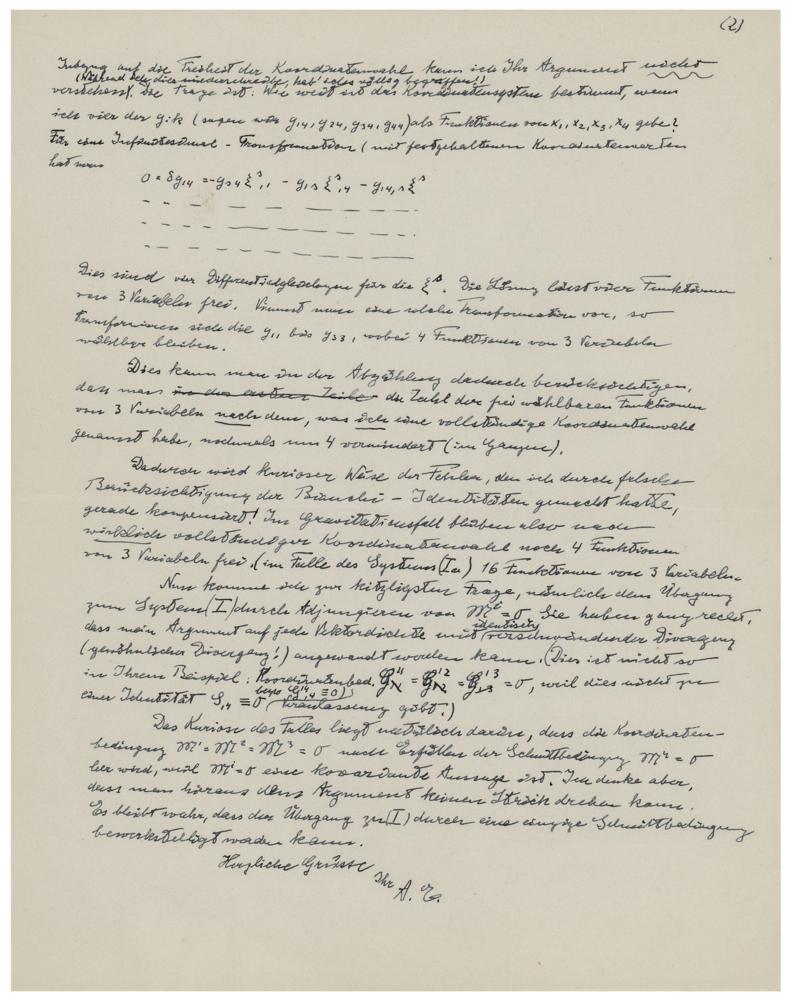 (2)
Inbezug auf die Freiheit der Koordinatenwahl kann ich Ihr Argument nicht
(Während ich dies niederschreibe, hab' ich's völlig begriffen!)
verstehen. Die Frage ist: Wie weit ist das Koordinatensystem bestimmt, wenn
ich vier der gik (sagen wir g14, g24, g34, g44) als Funktionen von x1, x2, x3, x4 gebe?
Für eine Infinitesimal-Transformation (mit festgehaltenen Koordinatenwerten
hat man
0 = δg14 = -gs4 ξ^s,1 - g1s ξ^s,4 - g14,s ξ^s
— — — — — —
— — — — — —
— — — — — —
Dies sind vier Differentialgleichungen für die ξ^s. Die Lösung lässt vier Funktionen
von 3 Variabeln frei. Nimmt man eine solche Transformation vor, so
transformieren sich die g11 bis g33, wobei 4 Funktionen von 3 Variabeln
wählbar bleiben.
Dies kann man in der Abzählung dadurch berücksichtigen,
dass man in der ersten Zeile die Zahl der frei wählbaren Funktionen
von 3 Variabeln nach dem, was ich eine vollständige Koordinatenwahl
genannt habe, nochmals um 4 vermindert (im Ganzen).
Dadurch wird kurioser Weise der Fehler, den ich durch falsche
Berücksichtigung der Bianchi-Identitäten gemacht hatte,
gerade kompensiert! Im Gravitationsfall bleiben also nach
wirklich vollständiger Koordinatenwahl noch 4 Funktionen
von 3 Variabeln frei, (im Falle des Systems (Ia) 16 Funktionen von 3 Variabeln.
Nun komme ich zur kitzligsten Frage, nämlich dem Übergang
zum System (I) durch Adjungieren von 𝔐^i = 0. Sie haben ganz recht,
identisch
dass mein Argument auf jede Vektordichte mit verschwindender Divergenz
(gewöhnlicher Divergenz!) angewandt werden kann. (Dies ist nicht so
in Ihrem Beispiel: Koordinatenbed. 𝔊^11 = 𝔊^12 = 𝔊^13 = 0, weil dies nicht zu
bezw. 𝔊^14,4 ≡ 0)
einer Identität S,4 ≡ 0 Veranlassung gibt.)
Das Kuriose des Falles liegt natürlich darin, dass die Koordinaten-
bedingung 𝔐^1 = 𝔐^2 = 𝔐^3 = 0 nach Erfüllen der Schnittbedingung 𝔐^4 = 0
leer wird, weil 𝔐^i = 0 eine kovariante Aussage ist. Ich denke aber,
dass man hieraus dem Argument keinen Strick drehen kann.
Es bleibt wahr, dass der Übergang zu (I) durch eine einzige Schnittbedingung
bewerkstelligt werden kann.
Herzliche Grüsse
Ihr
A. E.